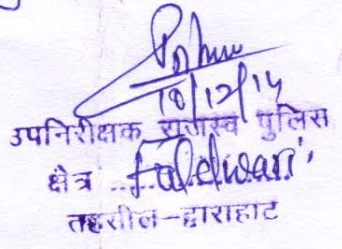 18/12/14
उपनिरीक्षक राजस्व पुलिस
क्षेत्र ..Faldwari..
तहसील-द्वाराहाट